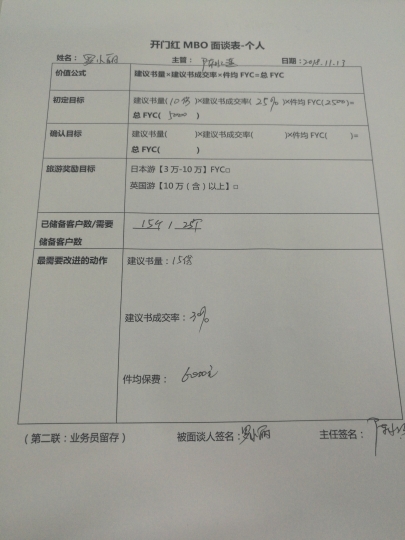 开门红 MBO 面谈表-个人
姓名： 主管： 日期：2018.11.17
价值公式 建议书量×建议书成交率×件均 FYC=总 FYC
初定目标 建议书量(10份)×建议书成交率(25%)×件均 FYC(2500)=
总 FYC(5000)
确认目标 建议书量( )×建议书成交率( )×件均 FYC( )=
总 FYC( )
旅游奖励目标 日本游【3 万-10 万】FYC□
英国游【10 万（含）以上】□
已储备客户数/需要 15个/25个
储备客户数
最需要改进的动作 建议书量：15份
建议书成交率：30%
件均保费：6000元
（第二联：业务员留存） 被面谈人签名： 主任签名：